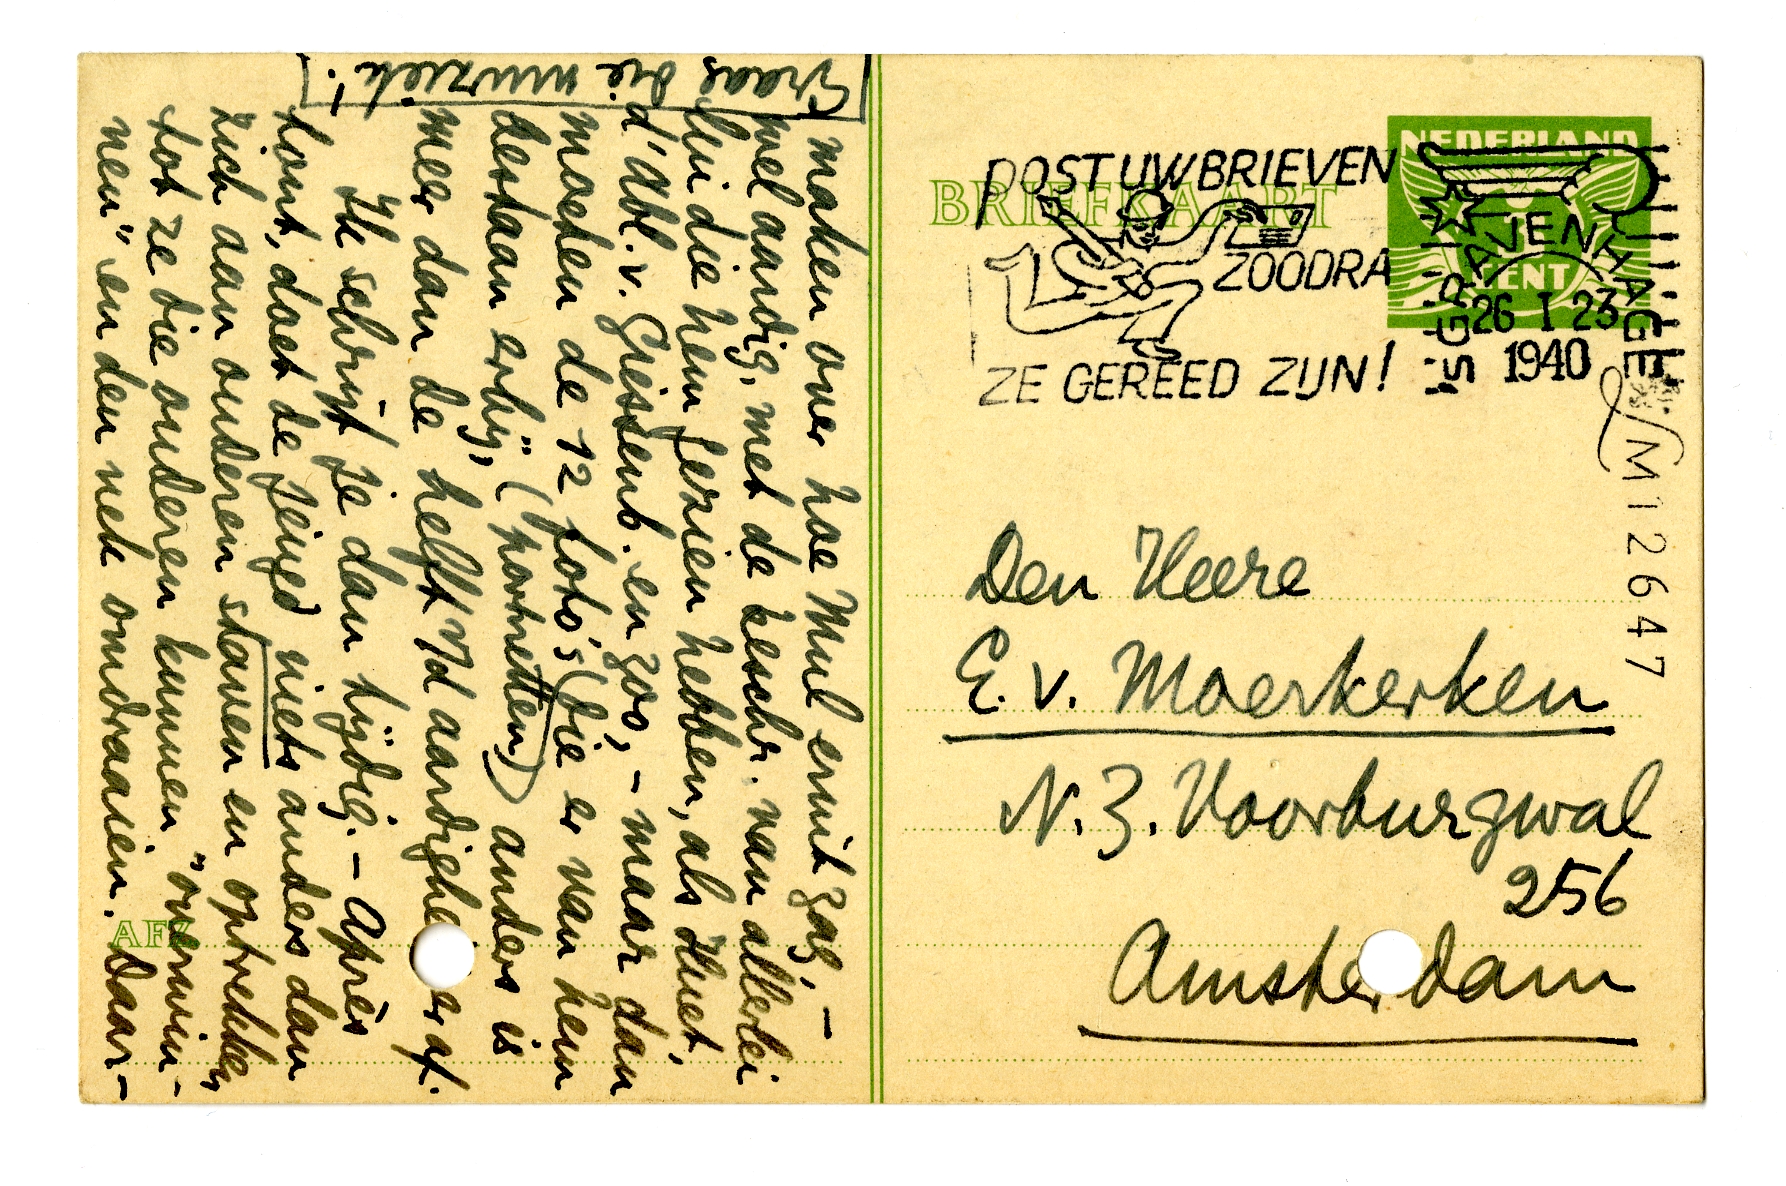 Vraag die muziek!
maken over hoe Mul eruit zag, –
wel aardig, met de beschr. van allerlei
lui die hem gezien hebben, als Huet,
d'Abl. v. Giessenb. en zoo, – maar dan
moeten de 12 foto's (die er van hem
bestaan erbij, (portretten) anders is
meer dan de helft v/d aardighe eraf.
Ik schrijf je dan tijdig. – Après
tout, doet de jeugd niets anders dan
zich aan anderen staven en optrekken
tot ze die anderen kunnen "overwin-
nen" en den nek omdraaien. Daar-
AFZ
BRIEFKAART
POST UW BRIEVEN
ZOODRA
ZE GEREED ZIJN!
NEDERLAND
CENT
'S GRAVENHAGE
26 I 23
1940
M12647
Den Heere
E. v. Moerkerken
N. Z. Voorburgwal
256
Amsterdam